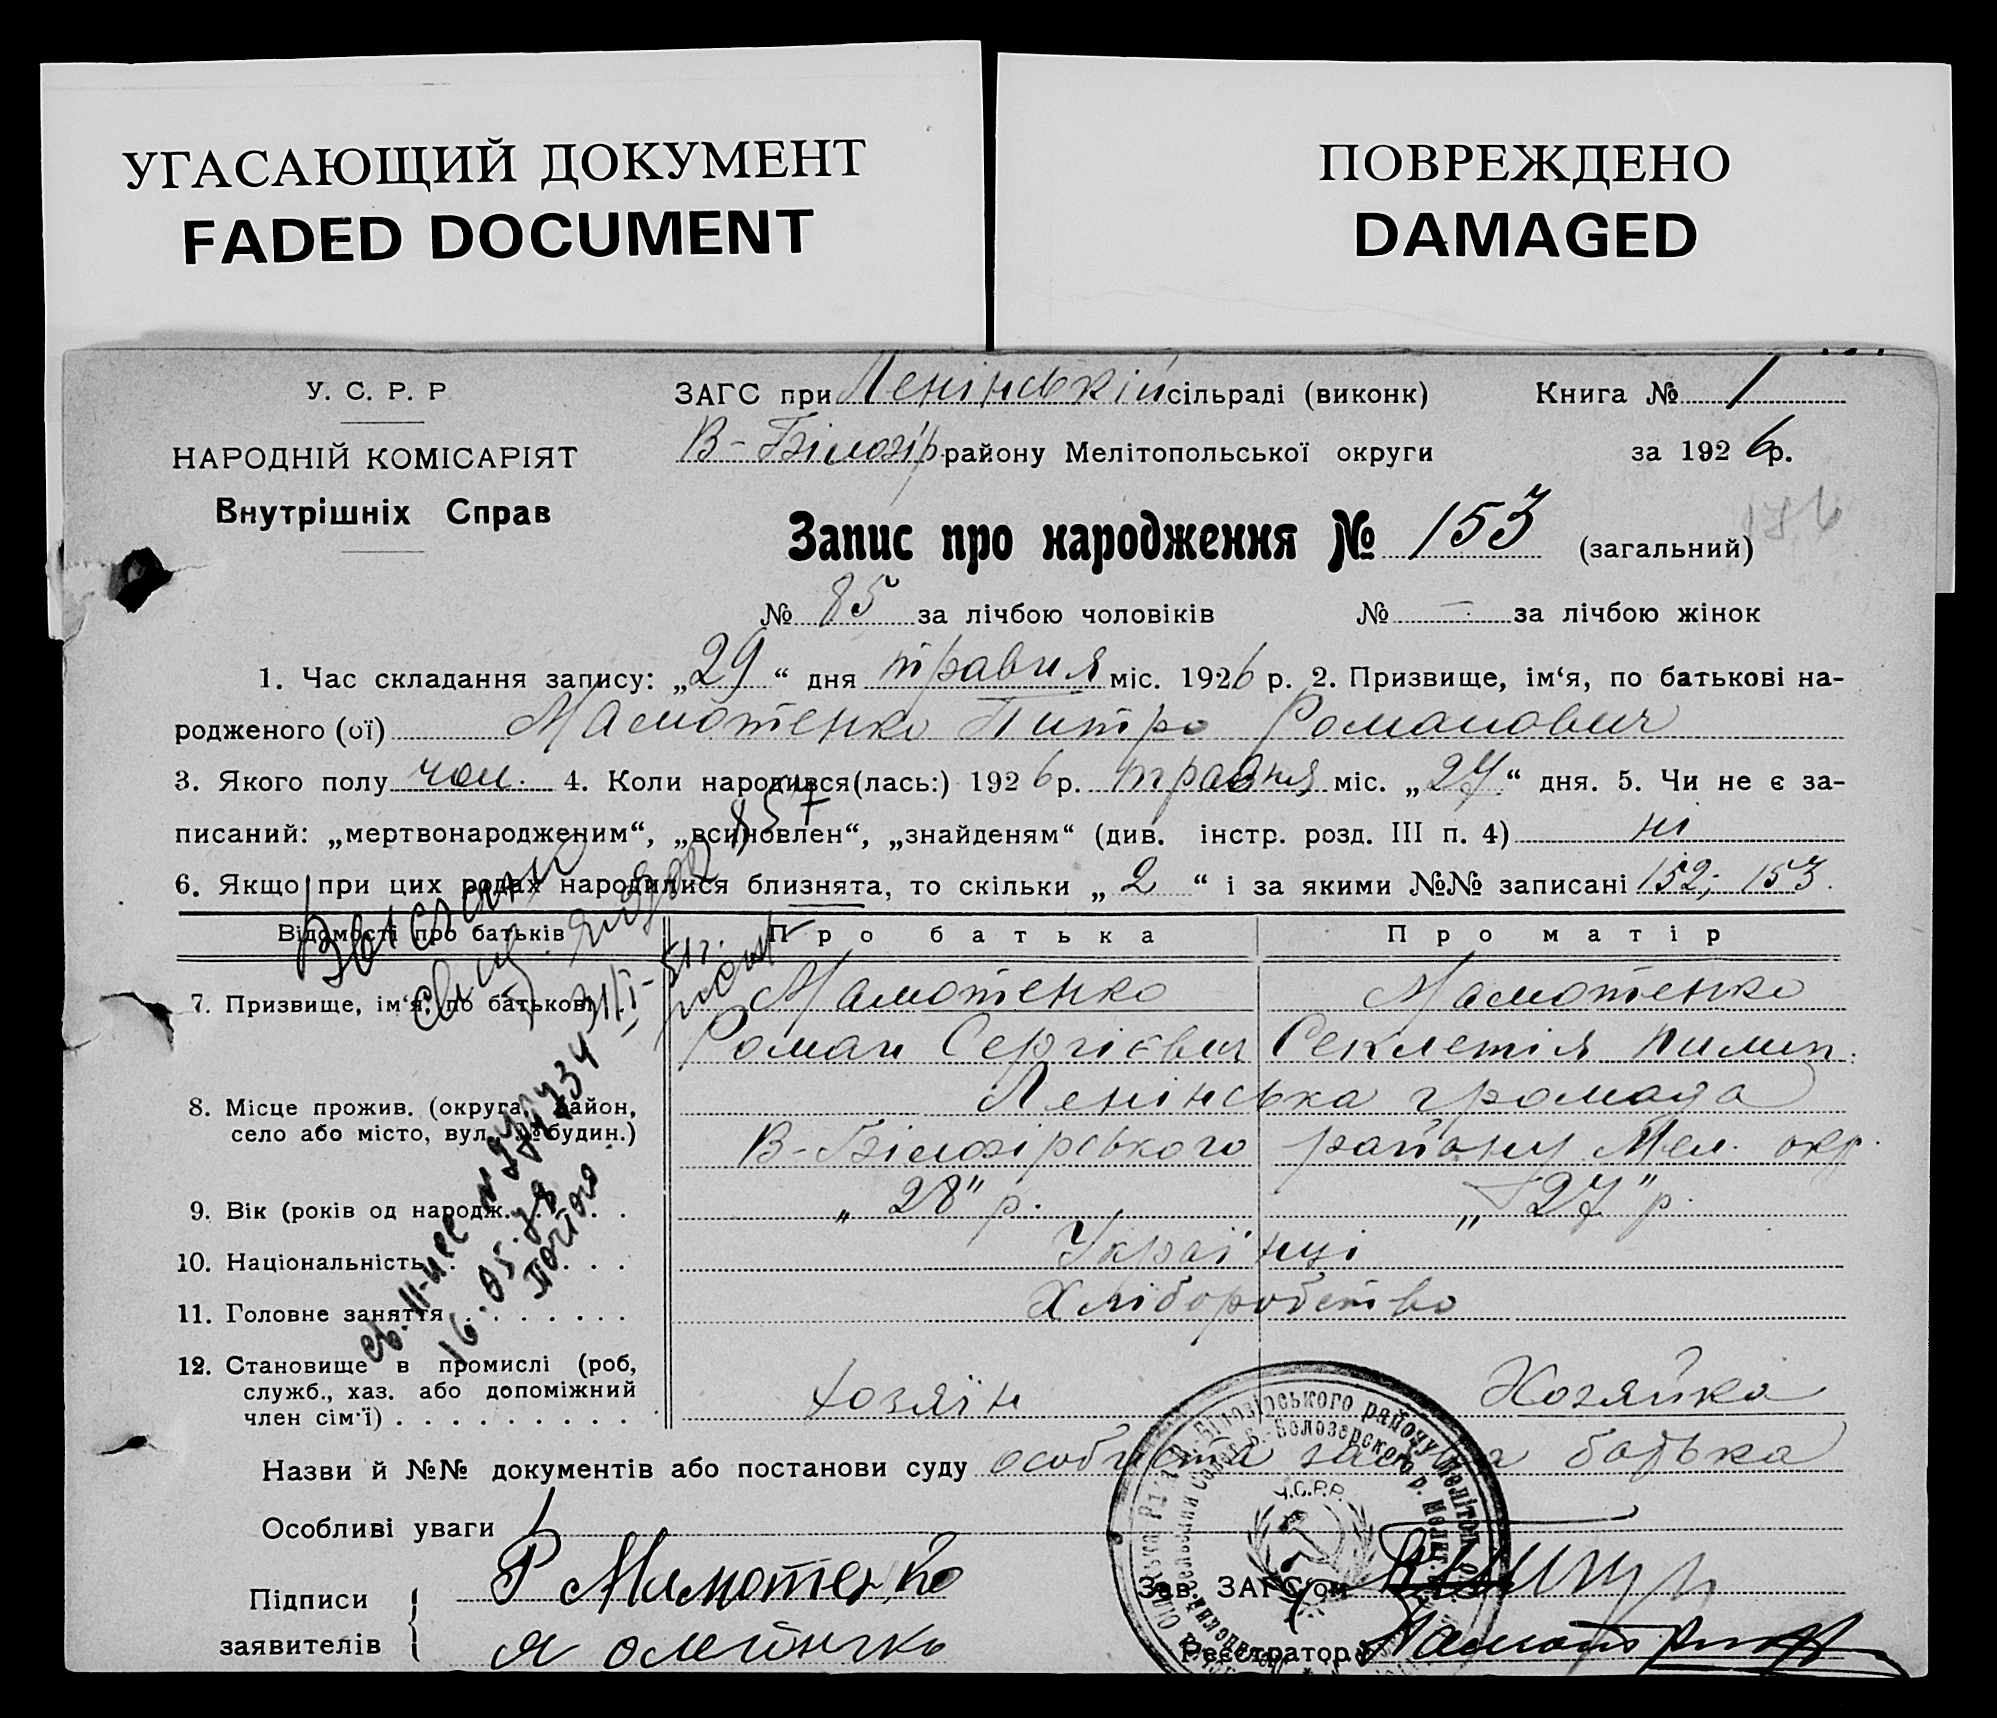 УГАСАЮЩИЙ ДОКУМЕНТ
FADED DOCUMENT
ПОВРЕЖДЕНО
DAMAGED
У. С. Р. Р
НАРОДНІЙ КОМІСАРІЯТ
Внутрішніх Справ
ЗАГС при Ленінській сільраді (виконк)
Книга № 1
В-Білозір району Мелітопольської округи
за 1926 р.
Запис про народження № 153 (загальний)
№ 85 за лічбою чоловіків № — за лічбою жінок
1. Час складання запису: „29“ дня травня міс. 1926 р. 2. Призвище, ім‘я, по батькові на-
родженого (ої) Мамотенко Питро Романович
3. Якого полу чол. 4. Коли народився(лась:) 1926 р. травня міс. „27“ дня. 5. Чи не є за-
писаний: „мертвонародженим“, „всиновлен“, „знайденям“ (див. інстр. розд. III п. 4) ні
6. Якщо при цих родах народилися близнята, то скільки „2“ і за якими №№ записані 152; 153.
Відомості про батьків Про батька Про матір
7. Призвище, ім‘я, по батькові Мамотенко Мамотенко
Роман Сергієвич Секлетія Пилип.
8. Місце прожив. (округа, район, Ленінська громада
село або місто, вул. № будин.) В-Білозірського району Мел. окр.
9. Вік (років од народж. . . . . „28" р. „27" р.
10. Національність . . . . . Українці
11. Головне заняття . . . . . . . Хліборобство
12. Становище в промислі (роб,
служб., хаз. або допоміжний
член сім'ї) . . . . . . . . . хозяїн Хозяйка
Назви й №№ документів або постанови суду особиста заява батька
Особливі уваги
Підписи
заявителів
Р Мамотенко
Зав. ЗАГС'ом
Реєстратор
У.С.Р.Р.
16.05.78